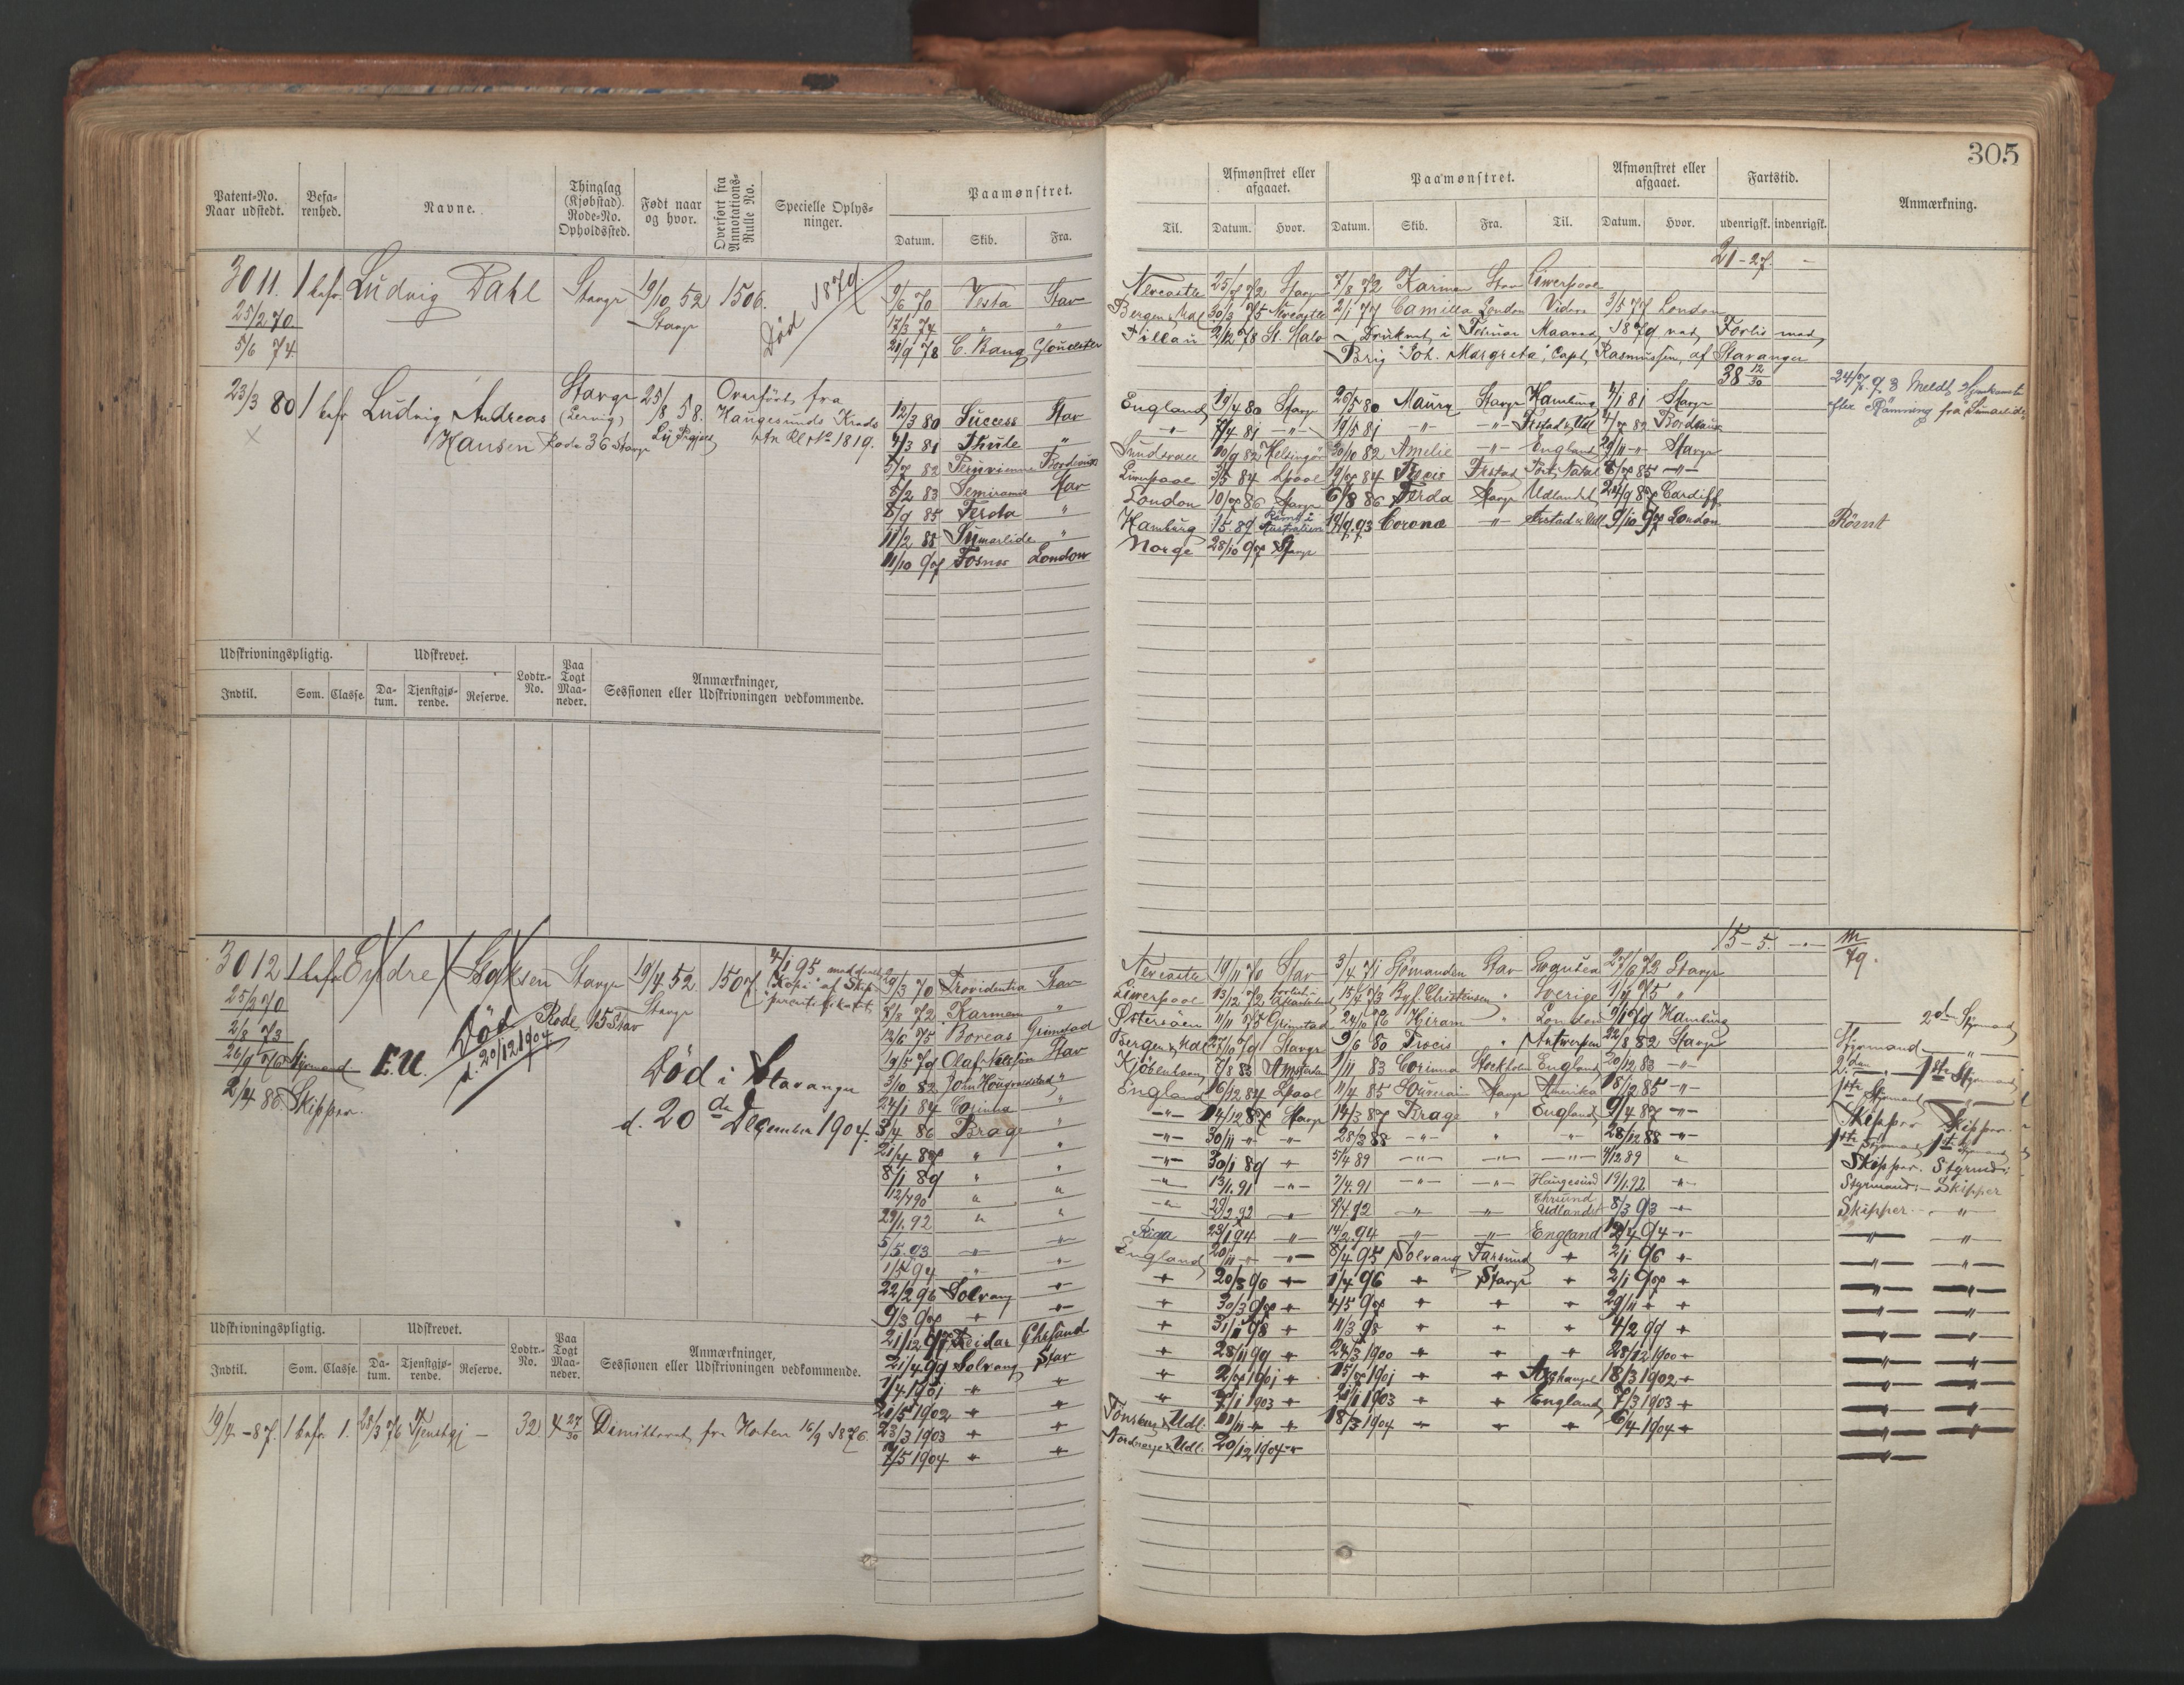 305
Patent-No. Naar udstedt.
Befarenhed.
Navne.
Thinglag (Kjøbstad). Rode-No. Opholdssted.
Født naar og hvor.
Overført fra Annotations-Rulle No.
Specielle Oplysninger.
Paamønstret.
Datum. Skib. Fra.
Til.
Afmønstret eller afgaaet.
Datum. Hvor.
Paamønstret.
Datum. Skib. Fra. Til.
Afmønstret eller afgaaet.
Datum. Hvor.
Fartstid.
udenrigsk. indenrigsk.
Anmærkning.
3011. 1 befr. Ludvig Dahl Stavgr 19/10 52 1506. Død 1879
25/2 70 Stavgr
5/6 74
9/6 70 Vesta Stav
17/3 74 " "
21/9 78 C. Bang Glouchster
21-27. -
Newcastle 25/7 72 Stavgr 7/8 72 Karmen Stav Liverpool
Bergen & Udl 30/3 75 Newcastle 2/1 77 Camilla London Videre 3/5 77 London
Pillau 2/12 78 St. Malo - Druknet i Februar Maaned 1879 ved Forlis med
Brig "Joh. Margreta", Capt. Rasmussen, af Stavanger
23/3 80 1 befr Ludvig Andreas Stavgr 25/8 58. Overført fra
Hansen Rode 36 Stavgr Haugesunds Kreds
An Rl No 1819.
12/3 80 Success Stav
4/3 81 Thule "
5/7 82 Peruvienne Bordeaux
8/2 83 Semiramis Stav
8/9 85 Ferda "
11/2 88 Sumarlide "
11/10 97 Fosnes London
38 12/30
England 19/4 80 Stavgr 26/5 80 Maury Stavgr Hamburg 4/1 81 Stavgr
-"- 7/4 81 -"- 19/5 81 -"- -"- Frstad & Udl 4/7 82 Bordeaux
Sundsvall 10/9 82 Helsingør 30/10 82 Amelie -"- England 29/11 -"- Stavgr
Liverpool 3/5 84 Lpool 19/7 84 Frstad Port Natal 8/7 85 -"-
London 10/7 86 Stavgr 6/8 86 Ferda Stavgr Udlandet 24/9 87 Cardiff
Hamburg 15 89 Rømt i Australien 19/9 93 Corona -"- Frstad & Udl 9/10 97 London Rømt
Norge 28/10 97 Stavgr
24/7 93 Meldt Hjemkomst
efter Rømning fra "Sumarlide"
Udskrivningspligtig.
Udskrevet.
Indtil. Som. Classe. Datum. Tjenstgjørende. Reserve.
Lodtr.-No.
Paa Togt Maaneder.
Anmærkninger, Sessionen eller Udskrivningen vedkommende.
3012 1 befr Endre Stavgr 19/4 52 1507
25/2 70 Stavgr
2/8 73 Rode 15 Stav
Styrmand E.U. Død d. 20/12 1904.
2/4 88. Skipper.
4/1 95 meddelt
Kopi af Skip
Død i Stavanger
d. 20de December 1904.
70 Providentia Stav
8/8 72 Karmen "
12/6 75 Boreas Grimstad
19/5 79 Olaf Stav
3/10 82 John Hougvaldstad "
24/1 84 Corinna "
3/4 86 Brage "
21/4 87 " "
8/1 89 " "
12/4 90 " "
29/1. 92 " "
5/5. 93 -"- -"-
1/5 94 -"- -"-
22/2 96 Solvang -"-
9/3 97 -"- -"-
21/12 97 Reidar Chrsand
21/4 99 Solvang Stav
1/4 1901 -"- -"-
20/5 1902 -"- -"-
23/3 1903 -"- -"-
7/5 1904 -"- -"-
15-5. -"-
M/79.
Newcastle 19/11 70 Stav 3/4 71 Sjømanden Stav 27/6 73 Stavgr
Liverpool 13/12 72 forlist i Atlanterhavet 15/4 73 Bgf. Christensen " Sverige 1/4 75 "
Østersøen 11/11 75 Grimstad 24/10 76 Hiram " London 9/1 79 Hamburg 2den Styrmand
Bergen & Udl 27/10 79 Stavgr 9/6 80 " Antwerpen 22/8 82 Stavgr Styrmand -"-
Kjøbenhavn 7/8 83 Amsterdam 1/11 83 Corinna Stockholm England 30/12 83 -"- 2den -"- 1ste Styrmand
England 16/12 84 Lpool 11/4 85 Stavgr Amerika 18/12 85 -"- 1ste Styrmand
-"- 14/12 87 Stavgr 14/3 87 Brage " England 9/4 87 -"- Skipper Skipper.
-"- 30/11 -"- -"- 28/3 88 -"- " -"- 28/12 88 -"- 1ste Styrmand 1ste Styrmand
-"- 30/1 89 -"- 5/4 89 -"- -"- -"- 4/12 89 " Skipper. Styrmd.
-"- 13/1. 91 -"- 7/4. 91 -"- -"- Haugesund 19/1. 92 -"- Styrmand - Skipper
-"- 29/2 92 -"- 7/4 92 -"- -"- Chrsund Udlandet 8/3 93 -"- Skipper -"-
Riga 23/1 94 -"- 14/2. 94 -"- -"- England 12/4 94 -"- -"- -"-
England 20/11 -"- -"- 8/4 95 Solvang Farsund -"- 2/1 96 -"- -"- -"-
-"- 20/3 96 -"- 1/4 96 -"- Stavgr -"- 2/1 97 -"- -"- -"-
-"- 30/3 97 -"- 4/5 97 -"- -"- -"- 29/11 -"- -"- -"- -"-
-"- 31/1 98 -"- 11/3 98 -"- -"- -"- 4/2 99 -"- -"- -"-
-"- 28/11 99 -"- 24/3 1900 -"- -"- -"- 28/12 1900 -"- -"- -"-
-"- 2/7 1901 -"- 15/7 1901 -"- -"- Archangel 18/3 1902 -"- -"- -"-
-"- 7/1 1903 -"- 21/1 1903 -"- -"- England 7/3 1903 -"- -"- -"-
Tønsberg & Udl. 11/11 -"- -"- 18/3 1904 -"- -"- -"- 6/4 1904 -"- -"- -"-
Nordnorge & Udl. 20/12 1904 -"- -"-
Udskrivningspligtig.
Udskrevet.
Indtil. Som. Classe. Datum. Tjenstgjørende. Reserve.
Lodtr.-No.
Paa Togt Maaneder.
Anmærkninger, Sessionen eller Udskrivningen vedkommende.
19/4 - 87. 1 befr. 1. 28/3 76 Tjenstgj - 32 4 27/30 Dimitteret fra Horten 16/9 1876.